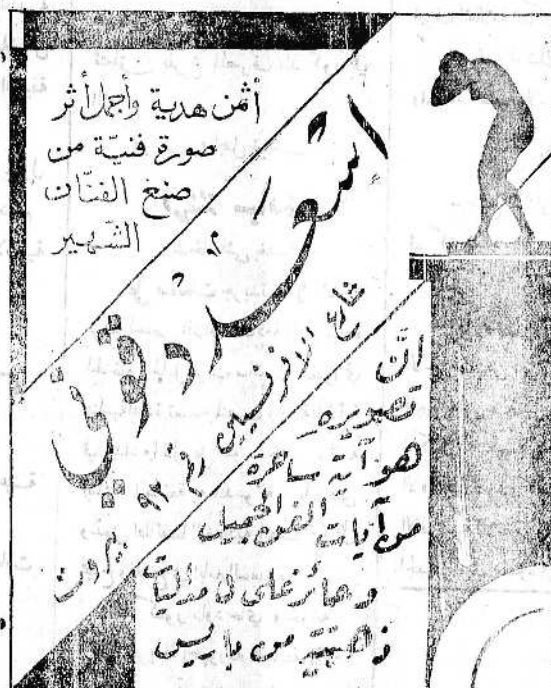 أثمن هدية وأجمل أثر
صورة فنيّة من
صنع الفنّان
الشّهير
اسعد دقوني
شارع الافرنسيين رقم ٩٢ بيروت
انّ
تصويره
هو آية ساحرة
من آيات الفن الجميل
وحائز على مداليات
ذهبية من باريس